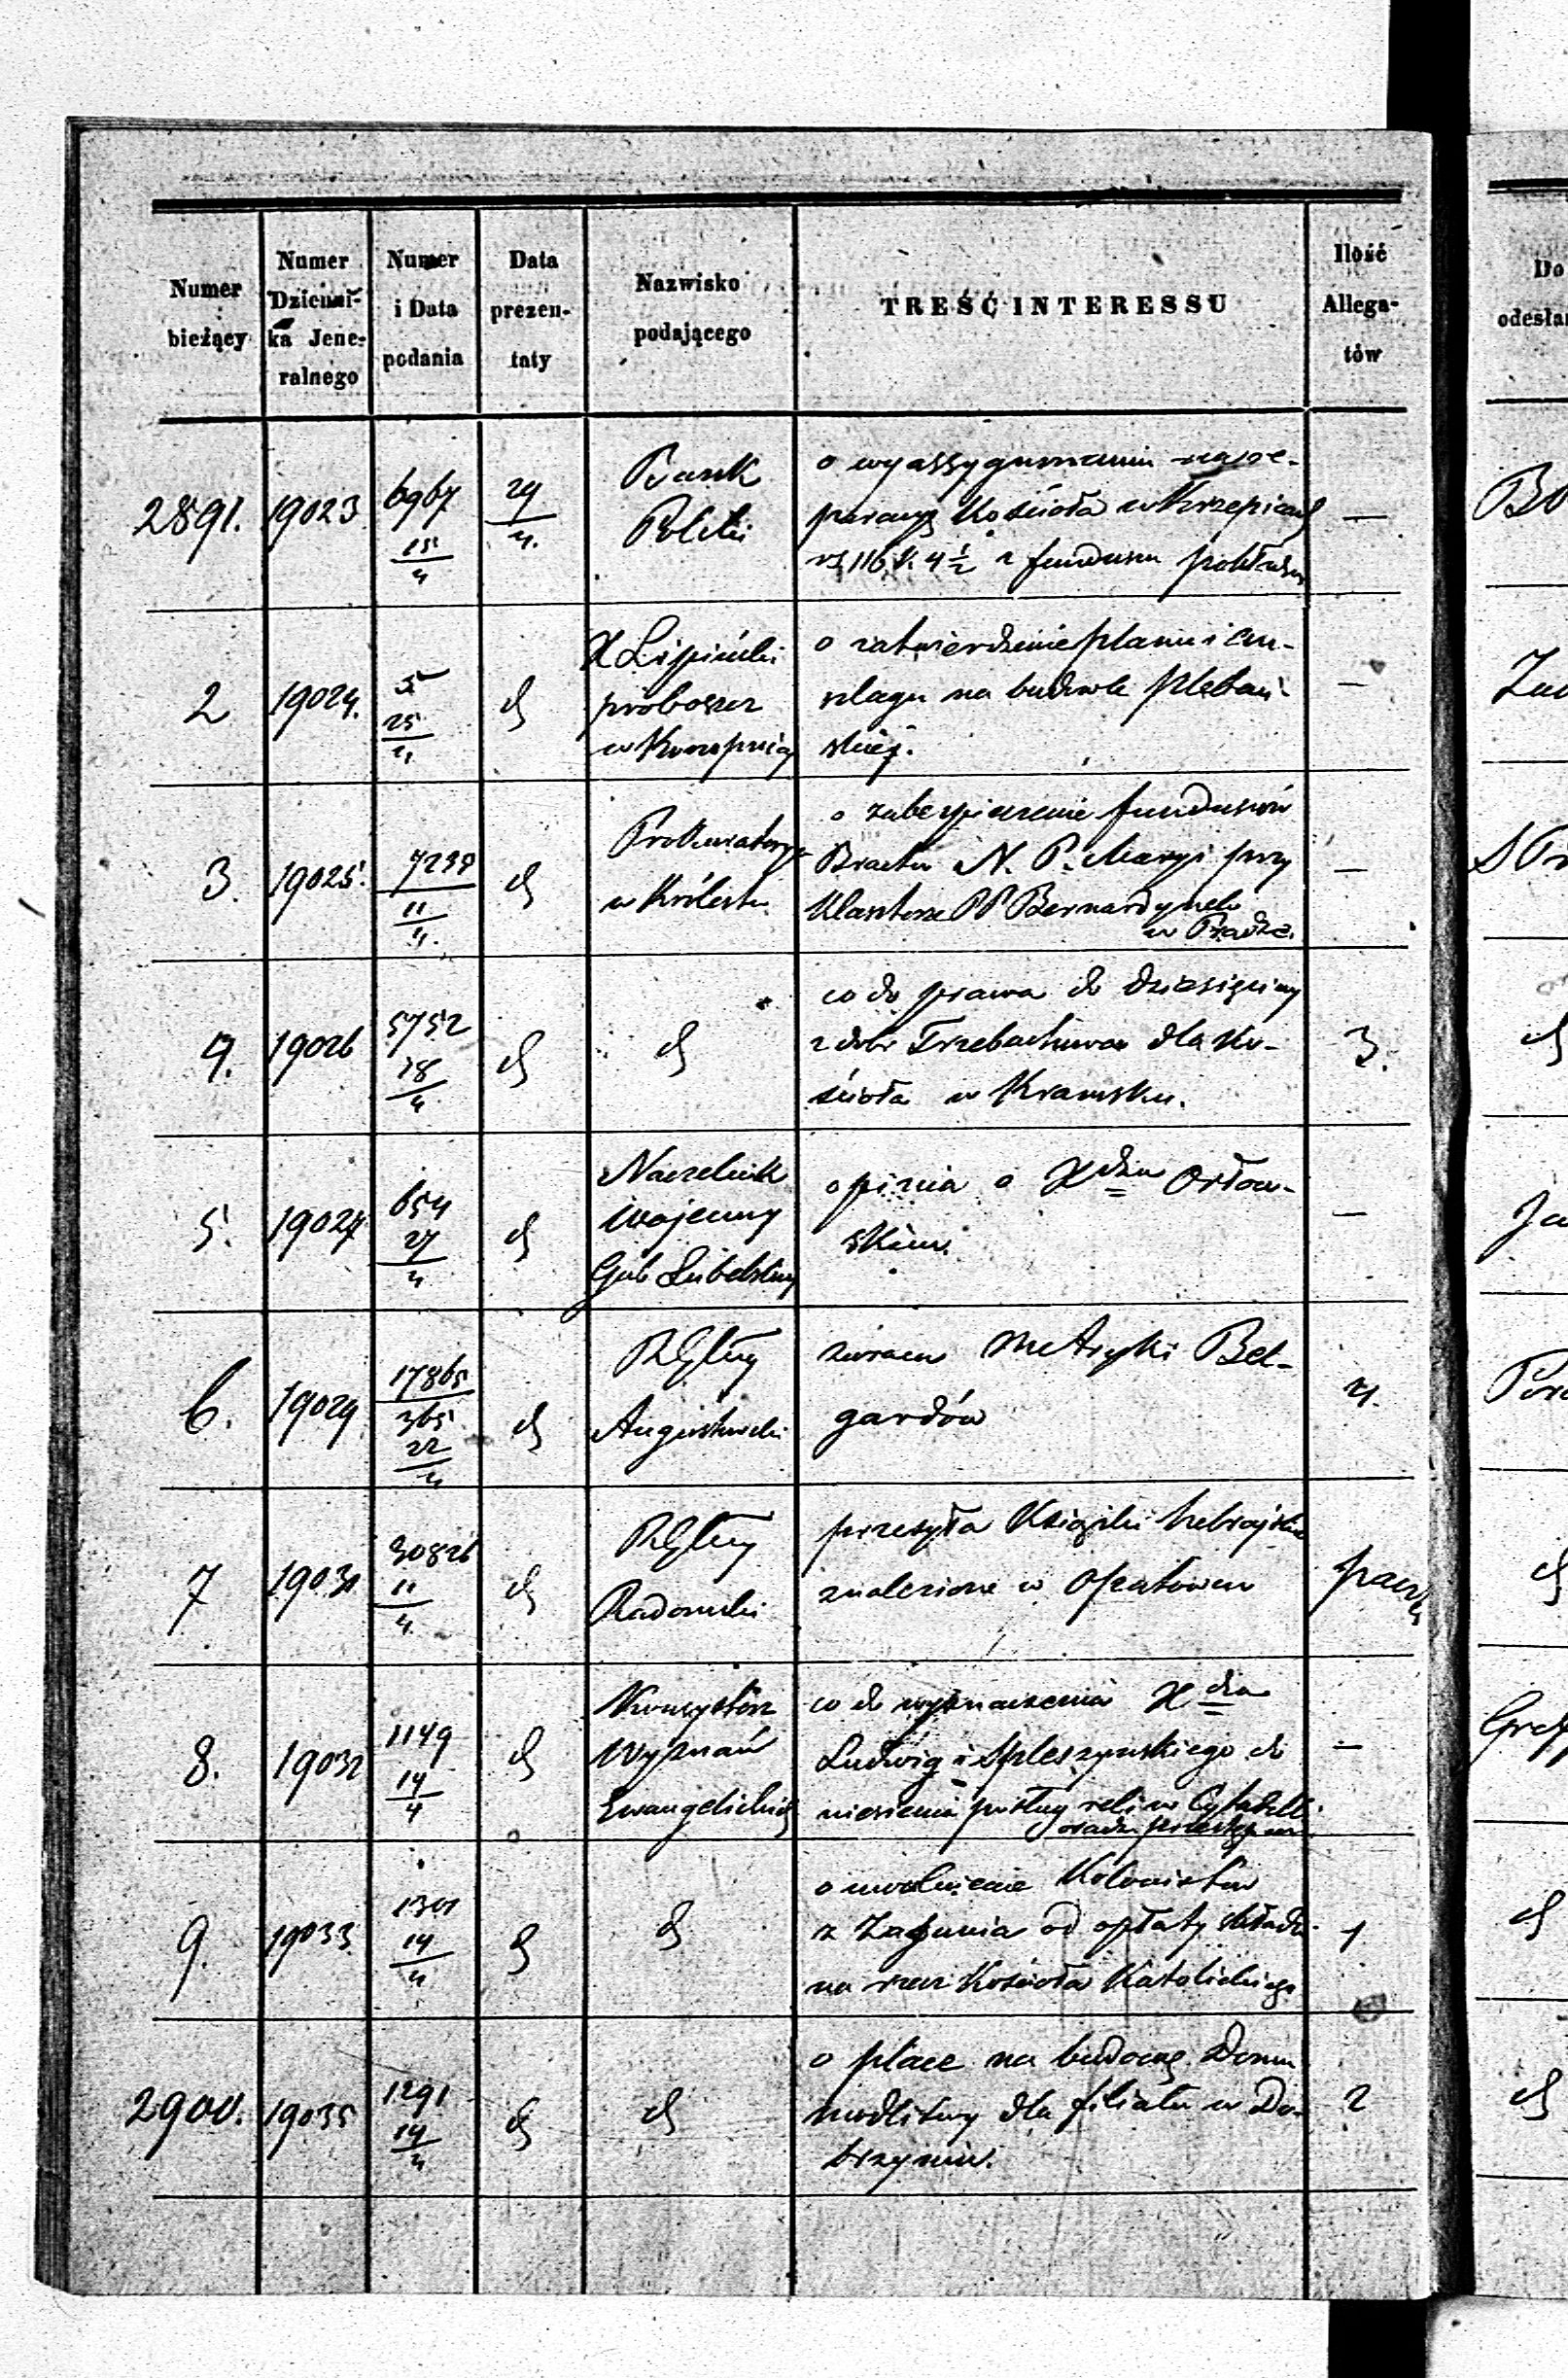 Numer bieżący | Numer Dziennika Jeneralnego | Numer i Data podania | Data prezentaty | Nazwisko podającego | TREŚĆ INTERESSU | Ilość Allegatów | Do
odesłan
2891. 19023 6967 15/4 29/4.
Bank
Polski
o wyassygnowanie na re-
peracyę Kościoła w Krzepicach
rs 116 k. 4 1/2 z funduszu
—
2 19024. 5 25/4 d
X Lipiński
proboszcz
w Konopnicy
o zatwierdzenie planu i an-
szlagu na budowle plebań-
skiej.
—
3. 19025. 7238 11/4. d
Prokuratorya
w Królestw.
o zabezpieczenie funduszów
Bractw N. P. Maryi przy
Klasztorze PP Bernardynek
w
—
4. 19026 5752 18/4 d
d
co do prawa do dziesięciny
z dóbr Trzebuchowa dla Ko-
ścioła w Kramsku.
3.
5. 19027 654 27/4 d
Naczelnik
Wojenny
Gub Lubelskiej
opinia o Xdzu Orłow-
skim.
—
6. 19029 17865 365 22/4 d
RGlny
Augustowski
zwraca Metryki Bel-
gardów
4.
7 19031 30826 11/4 d
RGlny
Radomski
przesyła Książki hebrajskie
znalezione w Opatowie
paczka
8. 19032 1149 14/4 d
Konsystorz
Wyznań
Ewangelickich
co do wyznaczenia Xdza
Ludwig i Spleszyńskiego do
niesienia posługi reli w Cytadelli
—
9. 19033 1301 14/4 d
d
o uwolnienie Kolonistów
z Zagunia od opłaty składki
na rzecz Kościoła Katolickiego
1
2900. 19035 1291 14/4 d
d
o place na budowę Domu
modlitwy dla filiału w Do-
brzyniu.
2